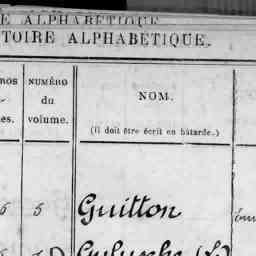 E ALPHABÉTIQUE
TOIRE ALPHABÉTIQUE.
ROS NUMÉRO NOM.
du
es. volume.
(Il doit être écrit en bâtarde.)
6 5 Guitton